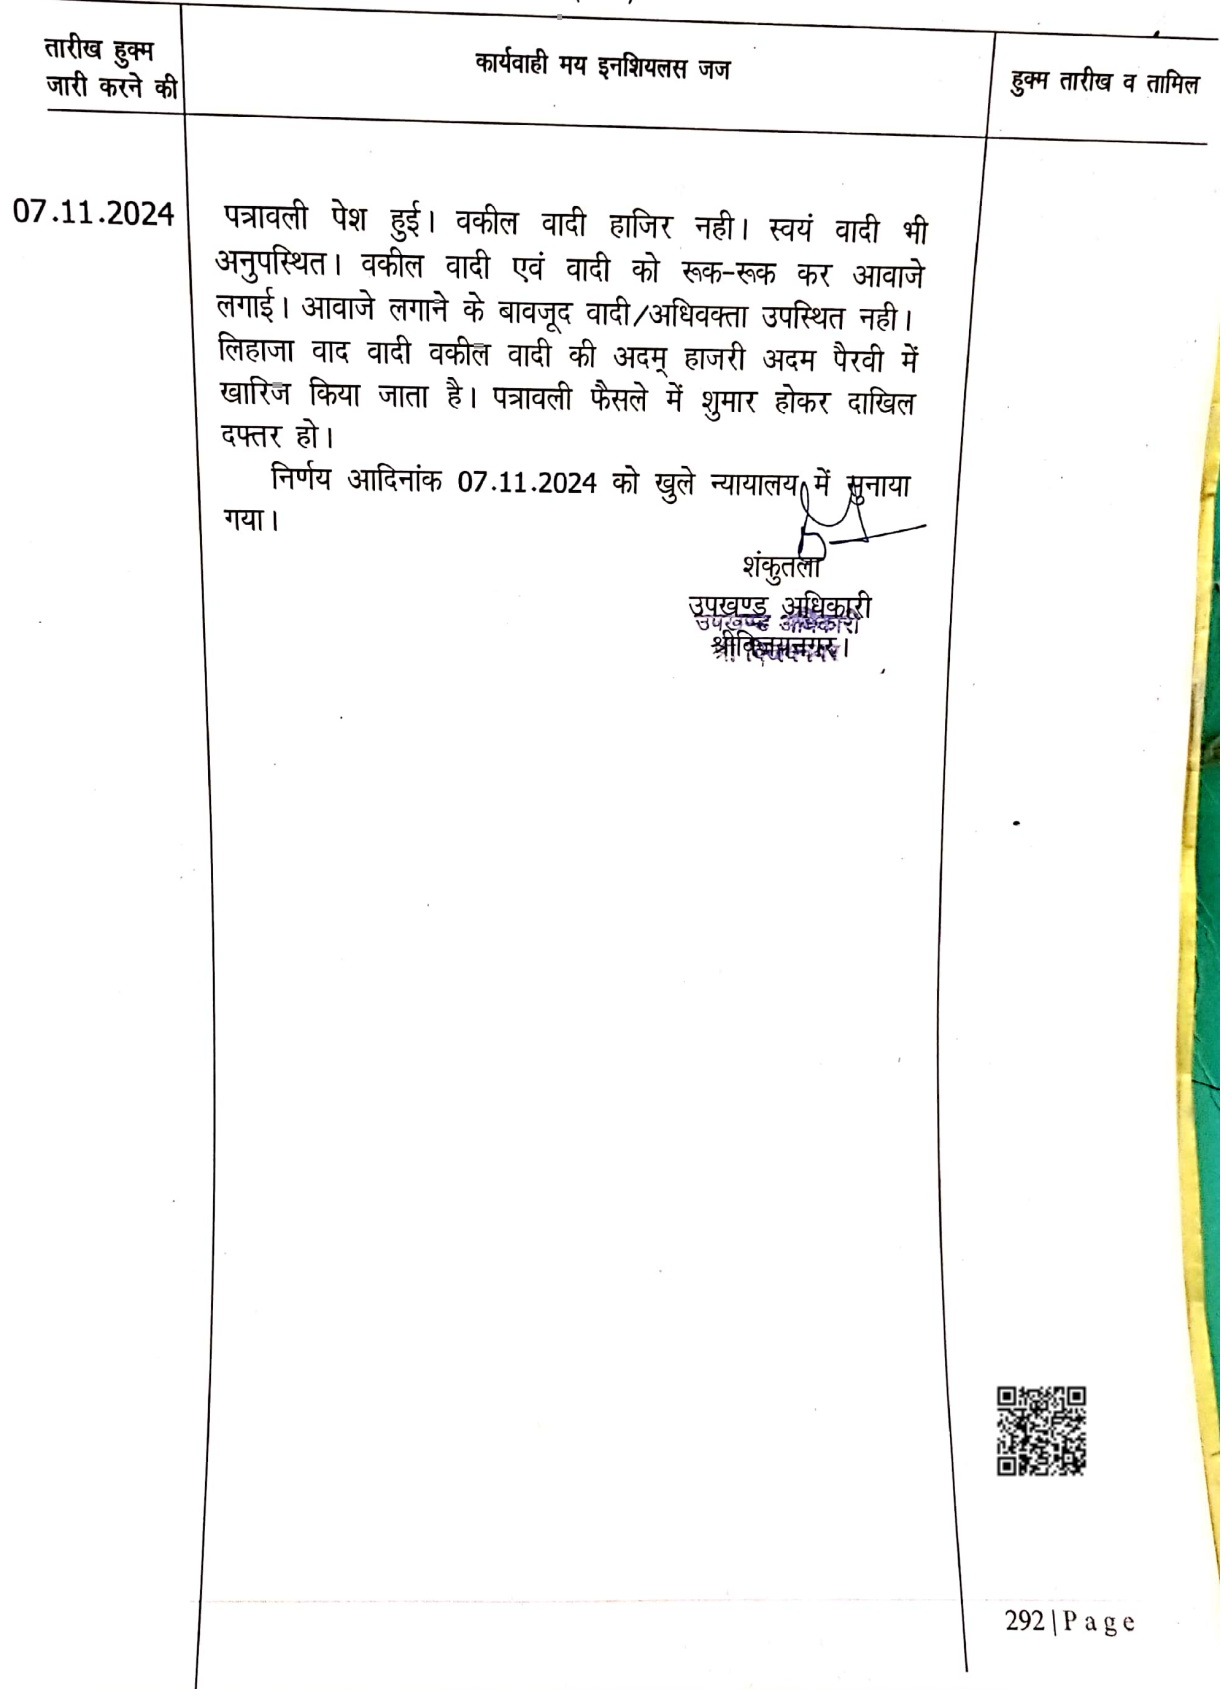 तारीख हुक्म
जारी करने की
कार्यवाही मय इनशियलस जज
हुक्म तारीख व तामिल
07.11.2024
पत्रावली पेश हुई। वकील वादी हाजिर नही। स्वयं वादी भी
अनुपस्थित। वकील वादी एवं वादी को रूक-रूक कर आवाजे
लगाई। आवाजे लगाने के बावजूद वादी/अधिवक्ता उपस्थित नही।
लिहाजा वाद वादी वकील वादी की अदम् हाजरी अदम पैरवी में
खारिज किया जाता है। पत्रावली फैसले में शुमार होकर दाखिल
दफ्तर हो।
निर्णय आदिनांक 07.11.2024 को खुले न्यायालय में सुनाया
गया।
शंकुतला
उपखण्ड अधिकारी
उपखण्ड अधिकारी
श्रीविजयनगर।
292|Page